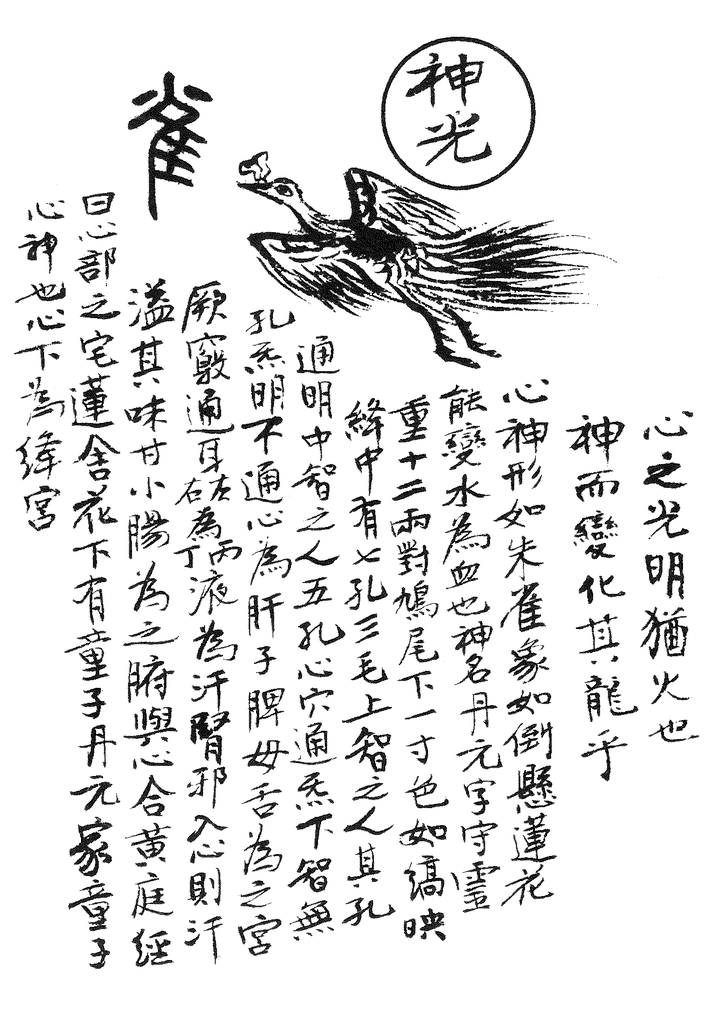 神光
雀
心之光明猶火也
神而變化其龍乎
心神形如朱雀象如倒懸蓮花
能變水為血也神名丹元字守靈
重十二兩對鳩尾下一寸色如縞映
絳中有七孔三毛上智之人其孔
通明中智之人五孔心穴通炁下智無
孔炁明不通心為肝子脾母舌為之宮
厥竅通耳左右為丙丁液為汗腎邪入心則汗
溢其味甘小腸為之腑與心合黃庭經
曰心部之宅蓮含花下有童子丹元家童子
心神也心下為絳宮